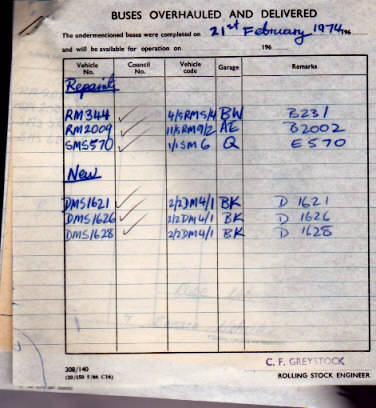 BUSES OVERHAULED AND DELIVERED
The undermentioned buses were completed on 21st February 1974 196
and will be available for operation on 196
Vehicle No. Council No. Vehicle code Garage Remarks
Repaints
RM344 ✓ 4/5RM5/4 BW B231
RM2009 ✓ 11/5RM9/2 AE B2002
SMS570 ✓ 1/1SM6 Q E570
New
DMS1621 ✓ 2/2DM4/1 BK D 1621
DMS1626 ✓ 2/2DM4/1 BK D 1626
DMS1628 ✓ 2/2DM4/1 BK D 1628
308/140
C. F. GREYSTOCK
ROLLING STOCK ENGINEER